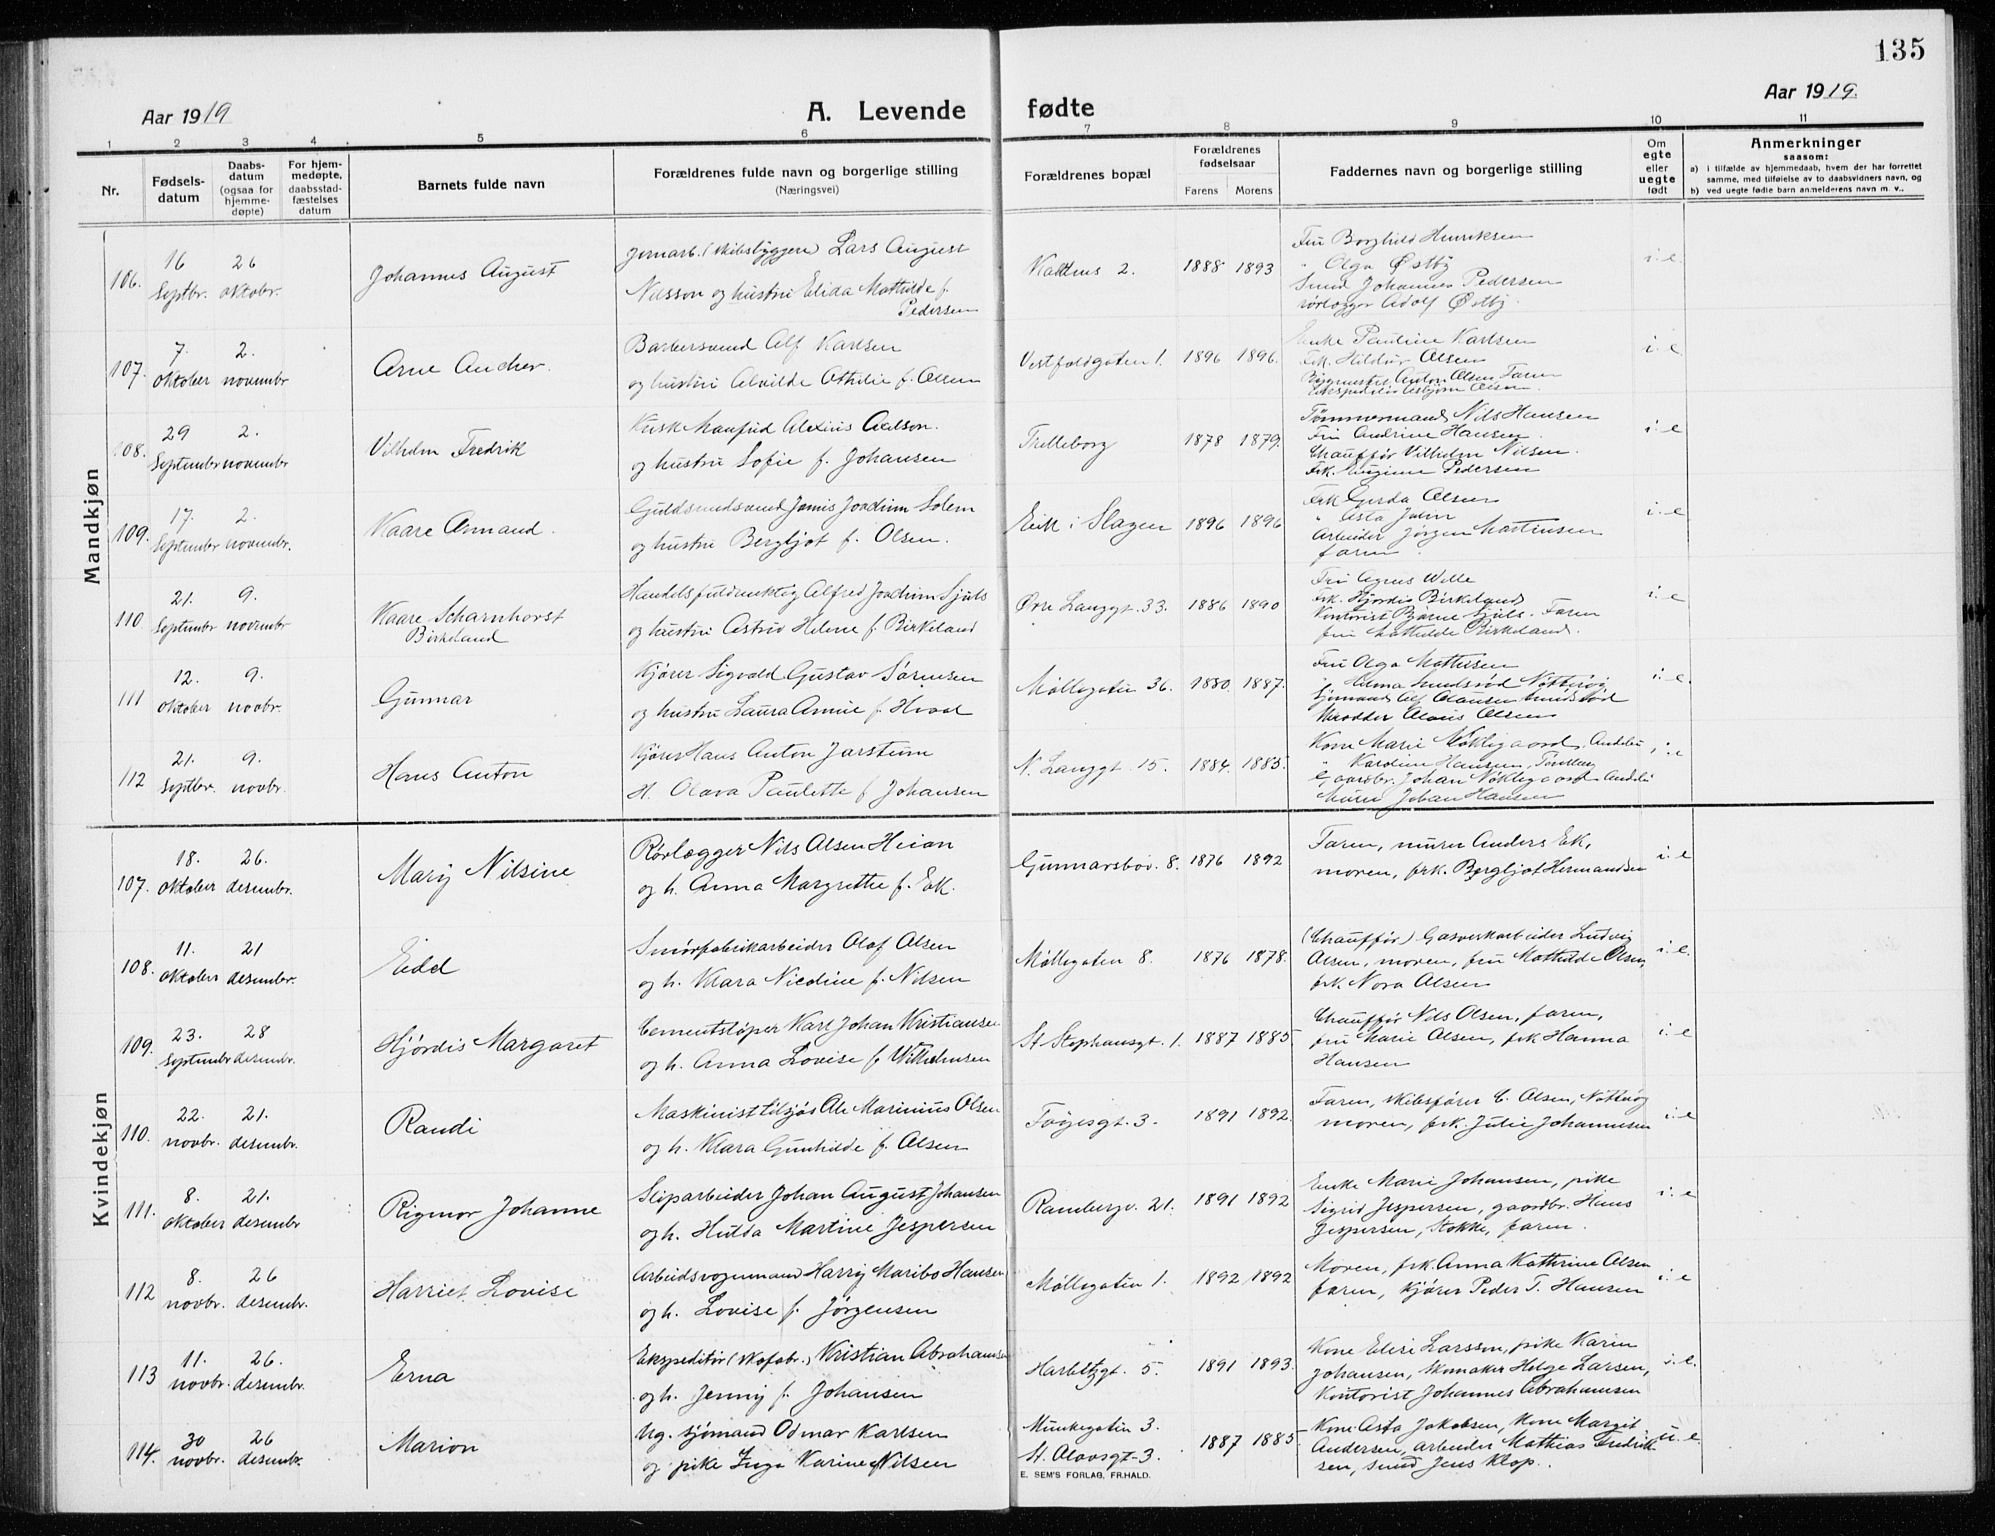 135
Aar 1919
A. Levende fødte
Aar 1919.
1 2 3 4 5 6 7 8 9 10 11
Nr.
Fødsels-
datum
Daabs-
datum
(ogsaa for
hjemme-
døpte)
For hjem-
medøpte,
daabsstad-
fæstelses
datum
Barnets fulde navn
Forældrenes fulde navn og borgerlige stilling
(Næringsvei)
Forældrenes bopæl
Forældrenes
fødselsaar
Farens Morens
Faddernes navn og borgerlige stilling
Om
egte
eller
uegte
født
Anmerkninger
saasom:
a) i tilfælde av hjemmedaab, hvem der har forrettet
samme, med tilføielse av to daabsvidners navn, og
b) ved uegte fødte barn anmelderens navn m. v..
Mandkjøn
106. 16 Septbr. 26 oktobr. Johannes August
Jernarb. (skibsbyggeri) Lars August
Nilsson og hustru Elida Mathilde f.
Pedersen
2. 1888 1893
Fru Borghild Henriksen
" Olga Østby
Smed Johannes Pedersen
rørlægger Adolf Østby.
i. e.
107. 7. oktober 2. novembr
Barbersvend Alf Karlsen
og hustru Alvilde Othilie f. Olsen
Vestfoldgaten 1. 1896 1896.
Enke Pauline Karlsen
Frk. Hildur Olsen
Anton Olsen, Faren
Asbjørn Olsen.
i. e.
108. 29 Septembr 2. novembr Vilhelm Fredrik
Kusk Manfrid Alexius
og hustru Sofie f. Johansen
Trelleborg 1878 1879.
Tømmermand Nils Hansen
Fru Andrine Hansen.
Chauffør Vilhelm Nilsen.
Frk. Eugenie Pedersen
i. e
109. 17. Septembr 2. novembr. Kaare Armand.
Guldsmedsvend Joachim Solem
og hustru Bergljot f. Olsen.
Eik i Slagen 1896 1896
Frk Gerda Olsen
" Asta
Arbeider Jørgen Martinsen
faren.
i. e
110. 21. Septembr 9. novembr Kaare Scharnhorst
Birkeland
Handelsfuldmektig Alfred Joachim Sjuls
og hustru Astrid Helene f. Birkeland
Øvre Langgt. 33. 1886 1890
Fru Agnes Wille
Frk. Hjørdis Birkeland
Kontorist Bjarne Sjuls. Faren
fru Mathilde Birkeland.
i. e
111 12. oktober 9. novbr. Gunnar
Kjører Sigvald Gustav Sørensen
og hustru Laura Annie f.
Møllegaten 36. 1880. 1887.
Fru Olga Mathisen
Nøtterøy
Sjømand Alf Olausen
Skrædder Olsen
i. e.
112 21. Septbr. 9. novbr. Hans Anton
Kjører Hans Anton Jarstein
H. Olava Paulette f. Johansen
N. Langgt. 15. 1884. 1885.
Kone Marie Møklegaard, Andebu
" Karoline Hansen, Tønsberg
Gaardbr. Johan Møklegaard Andebu
Murer Johan Hansen
i. e
Kvindekjøn
107. 18. oktober 26. desembr. Mary Nilsine
Rørlægger Nils Olsen Heian
og h. Anna Margrethe f. Eek.
Gunnarsbøv. 8. 1876 1892
Faren, murer Anders Ek,
moren, frk. Bergljot Hermandsen
i. e
108. 11. oktober 21 desembr. Edd
Smørfabrikarbeider Olaf Olsen
og h. Klara Nicoline f. Nilsen
Møllegaten 8. 1876 1878.
(Chauffør) Gasverkarbeider Ludvig
Olsen, moren, fru Mathilde Olsen,
frk. Nora Olsen
i. e.
109. 23. Septembr 28 desembr. Hjørdis Margaret
Cementstøper Karl Johan Kristiansen
og h. Anna Lovise f. Wilhelmsen
St Stephansgt. 1. 1887 1885
Chauffør Nils Olsen, faren,
fru Marie Olsen, frk Hanna
Hansen
i. e
110. 22. novbr. 21. desembr. Randi
Maskinist tilsjøs Ole Marinius Olsen
og h. Klara Gunhilde f. Olsen
Foynsgt. 3. 1891 1892.
Faren, skibsfører C. Olsen, Nøtterøy
moren, frk. Julie Johannesen
i. e
111. 8. oktober 21. desembr Rigmor Johanne
Sliparbeider Johan August Johansen
og h. Hulda Martine Jespersen
Rambergv. 21. 1891 1892
Enke Marie Johansen, pike
Sigrid Jespersen, gaardbr. Hans
Jespersen, Stokke, faren.
i. e
112 8. novbr. 26 desembr. Harriet Lovise
Arbeidsvognmand Harry Maribo Hansen
og h. Lovise f. Jørgensen
Møllegaten 1. 1892 1892
Moren, frk. Anna Kathrine Olsen
faren, kjører Peder T. Hansen
i. e
113 11. novbr. 26. desembr. Erna
Ekspeditør (skofabr.) Kristian Abrahamsen
og h. Jenny f. Johansen
5. 1891 1893.
Kone Elise Larsson, pike Karin
Johansen, skomaker Helge Larsen,
Kontorist Johannes Abrahamsen
i. e.
114. 30 novbr. 26 desembr. Marion
Ug. sjømand Odmar Karlsen
og pike Inga Karine Nilsen
Munkegaten 3.
St. Olavsgt. 3. 1887 1885
Kone Asta Jakobsen, kone Margit
Andersen, arbeider Mathias Fredrik-
sen, smed Jens Klop.
u. e.
E. SEM'S FORLAG, FR.HALD.